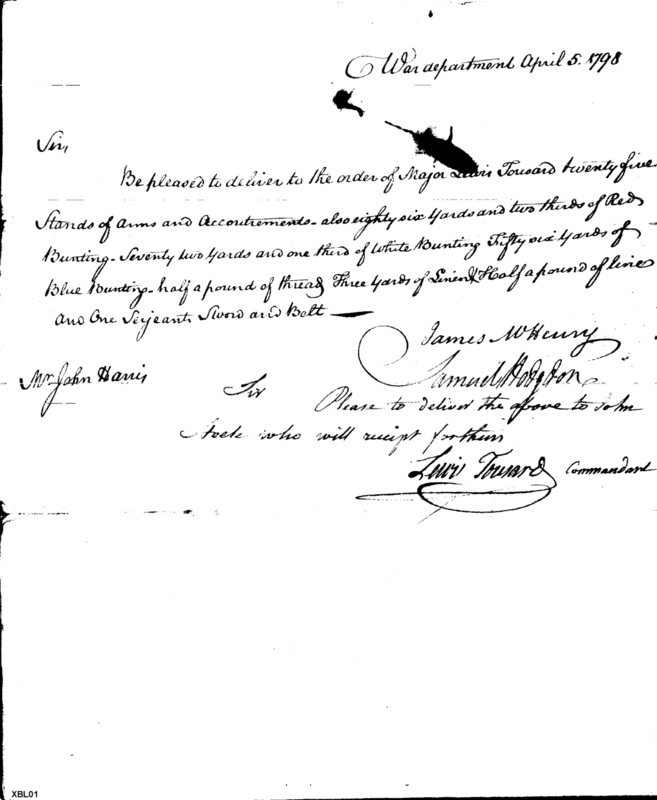 War department April 5. 1798
Sir,
Be pleased to deliver to the order of Major Lewis Tousard twenty five
Stands of Arms and Accoutrements - also eighty six Yards and two thirds of Red
Bunting - Seventy two Yards and one third of White Bunting Fifty six Yards of
Blue Bunting - half a pound of thread Three Yards of Linen & Half a pound of line
and One Serjeants Sword and Belt —
James McHenry
Mr John Harris
Samuel Hodgdon
Sir
Please to deliver the above to John
Stock who will receipt for them
Lewis Tousard Commandant
XBL01